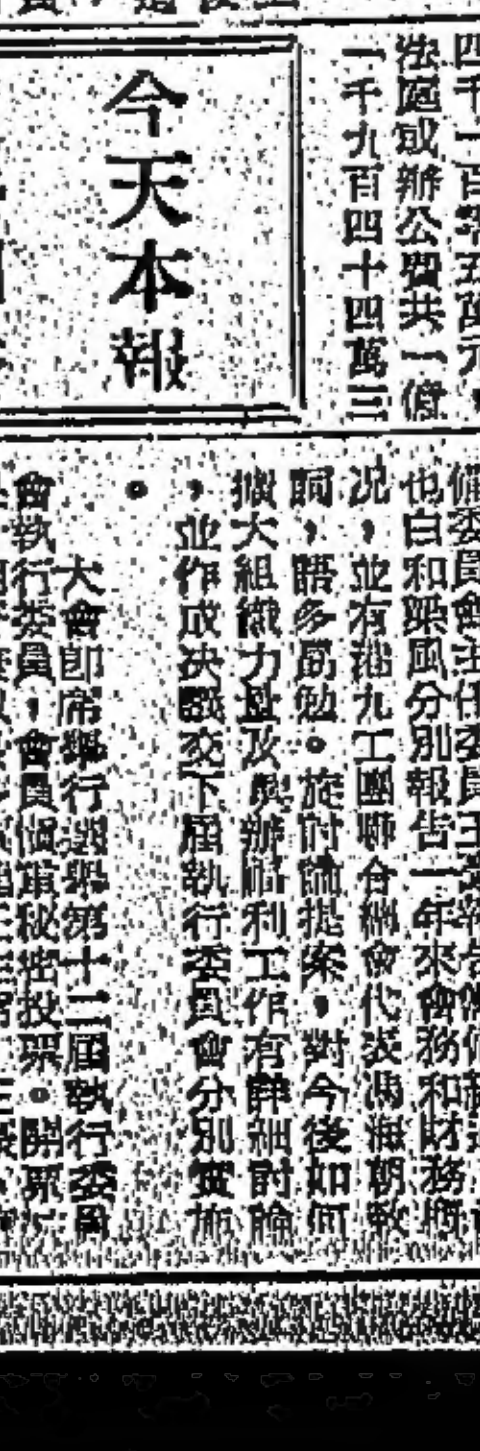 四千一百零五萬元，
法庭或辦公費共一億
一千九百四十四萬三
今天本報
備委員會主任委員王
也白和梁風分別報告一年來會務和財務情
况，並有港九工團聯合總會代表馮海潮致
詞，語多勗勉。旋討論提案，對今後如何
擴大組織力量及興辦福利工作有詳細討論
，並作成決議交下屆執行委員會分別實施
。
大會即席舉行選舉第十二屆執行委員
會執行委員，會員慎重秘密投票。開票